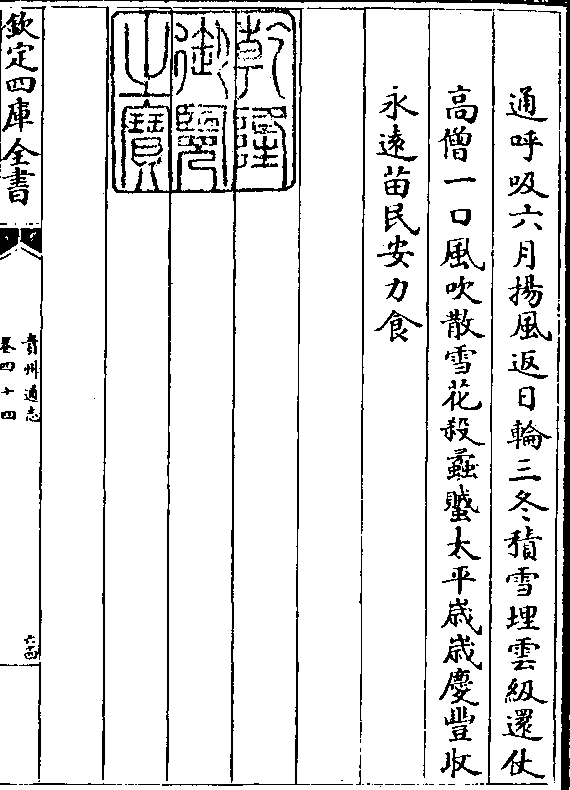 通呼吸六月揚風返日輪三冬積雪埋雲級還仗
高僧一口風吹散雪花殺蟊蠈太平歳歳慶豐收
永遠苗民安力食
乾隆
御覽
之寶
欽定四庫全書
貴州通志
卷四十四
六四